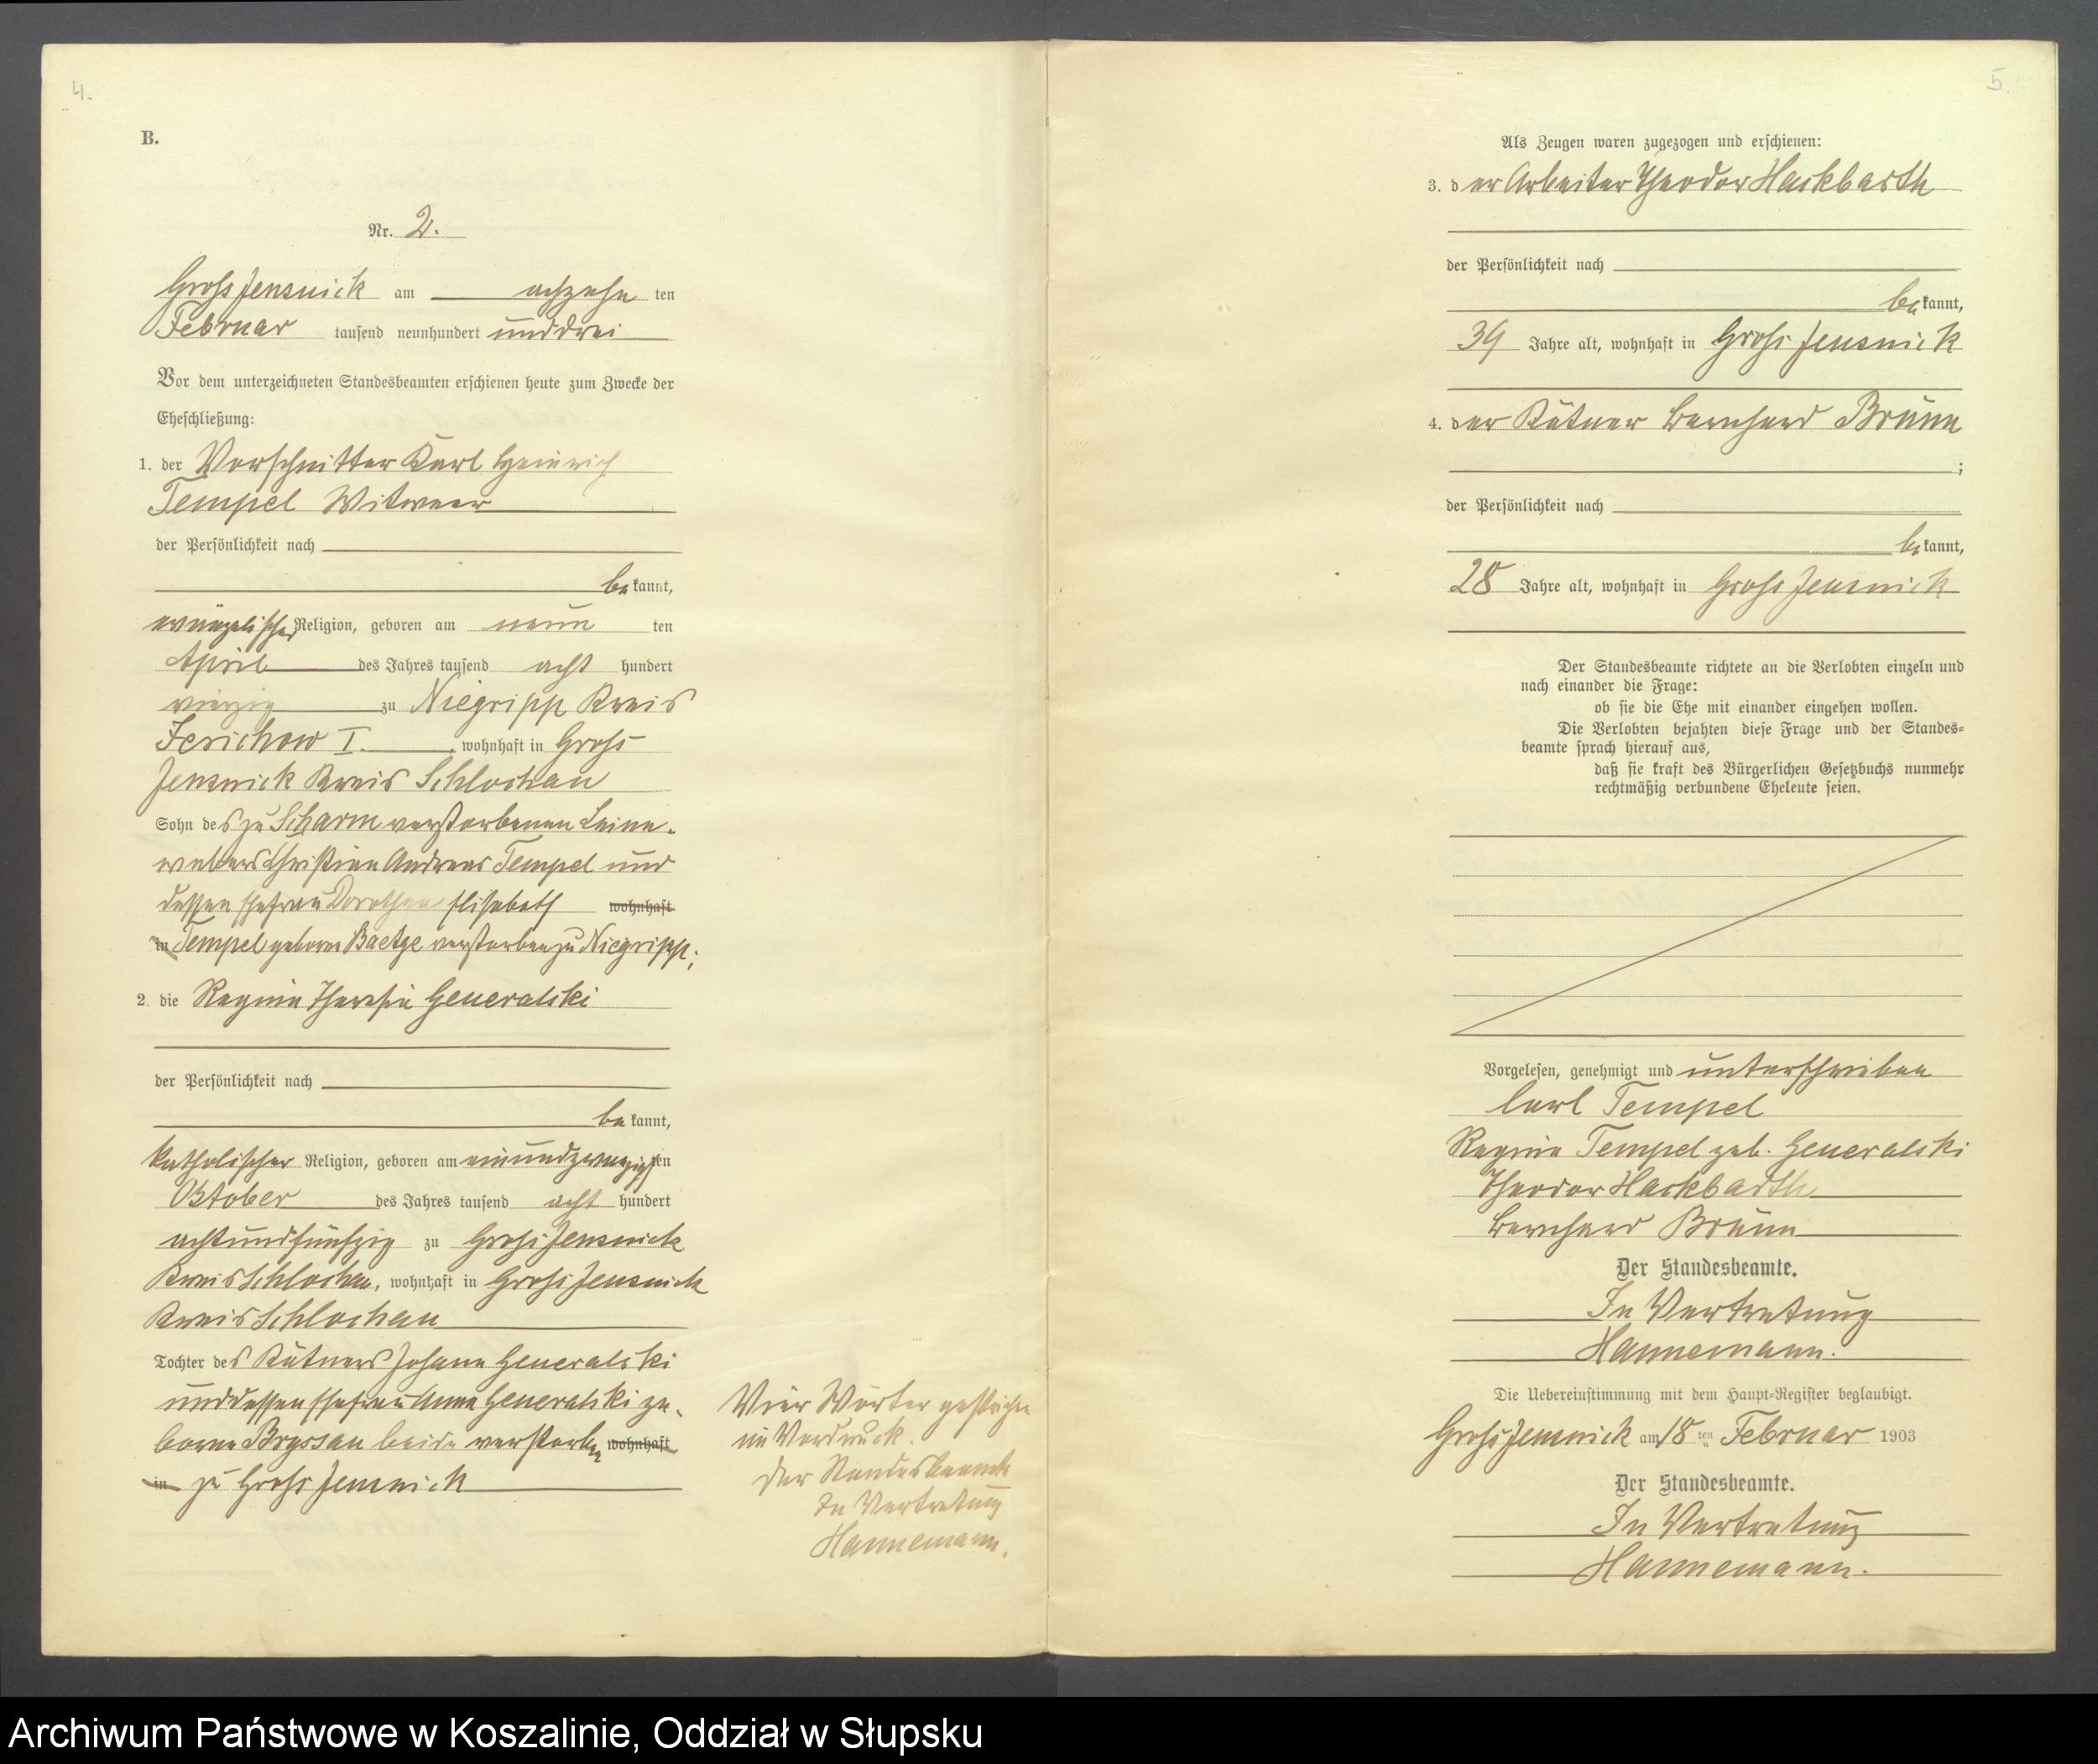 4.
B.
Nr. 2.
Gross Jensnick am achzehn ten
Februar tausend neunhundert und drei
Vor dem unterzeichneten Standesbeamten erschienen heute zum Zwecke der
Eheschließung:
1. der Vorschnitter Karl Heinrich
Tempel Witwer
der Persönlichkeit nach
be kannt,
evangelischer Religion, geboren am neun ten
April des Jahres tausend acht hundert
vierzig zu Niegripp Kreis
Jerichow I. , wohnhaft in Gross
Jensnick Kreis Schlochau
Sohn des zu Scharm verstorbenen Leine-
webers Christian Andreas Tempel und
dessen Ehefrau Dorothea Elisabeth wohnhaft
in Tempel geborne Baetge verstorben zu Niegripp;
2. die Regina Theresia Generalski
der Persönlichkeit nach
be kannt,
katholischer Religion, geboren am einundzwanzigsten
Oktober des Jahres tausend acht hundert
achtundfünfzig zu Gross Jensnick
Kreis Schlochau, wohnhaft in Gross Jensnick
Kreis Schlochau
Tochter des Kätners Johann Generalski
und dessen Ehefrau Anna Generalski ge-
borne Bryssau beide verstorben wohnhaft
in zu Gross Jensnick
Vier Wörter gestrichen
im Vordruck.
Der Standesbeamte
In Vertretung
Hannemann.
5
Als Zeugen waren zugezogen und erschienen:
3. der Arbeiter Theodor Hackbarth
der Persönlichkeit nach
be kannt,
39 Jahre alt, wohnhaft in Gross Jensnick
4. der Kätner Bernhard Brünn
;
der Persönlichkeit nach
be kannt,
28 Jahre alt, wohnhaft in Gross Jensnick
Der Standesbeamte richtete an die Verlobten einzeln und
nach einander die Frage:
ob sie die Ehe mit einander eingehen wollen.
Die Verlobten bejahten diese Frage und der Standes=
beamte sprach hierauf aus,
daß sie kraft des Bürgerlichen Gesetzbuchs nunmehr
rechtmäßig verbundene Eheleute seien.
Vorgelesen, genehmigt und unterschrieben
Carl Tempel
Regina Tempel geb. Generalski
Theodor Hackbarth
Bernhard Brünn
Der Standesbeamte.
In Vertretung
Hannemann.
Die Uebereinstimmung mit dem Haupt=Register beglaubigt.
Gross Jensnick am 18 ten Februar 1903
Der Standesbeamte.
In Vertretung
Hannemann.
Archiwum Państwowe w Koszalinie, Oddział w Słupsku